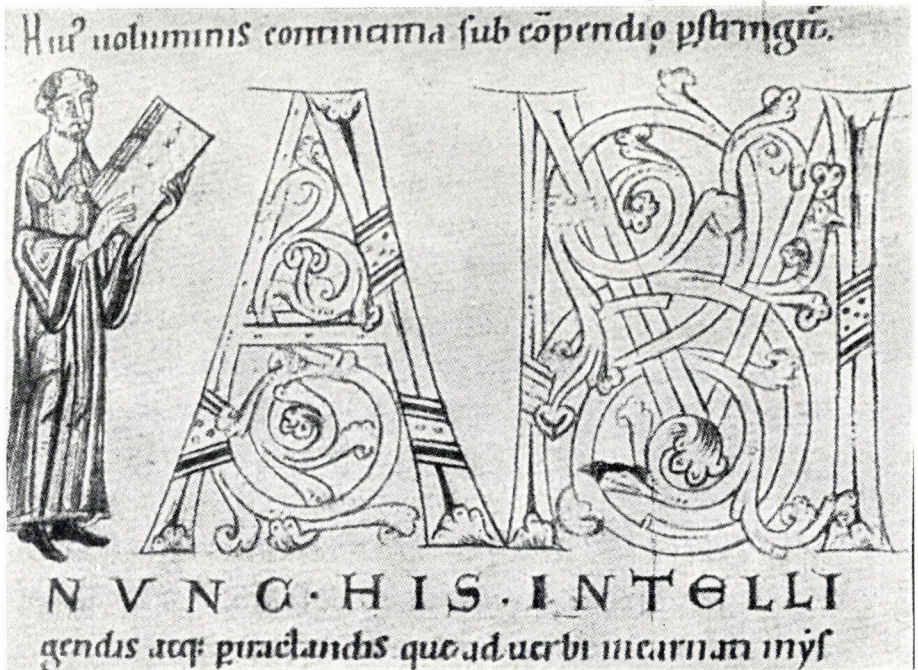 Huiꝰ uoluminis continentia sub cōpendio p̄stringit᷑.
AM
NVNC·HIS·INTELLI
gendis atq; ꝑtractandis que ad uerbi incarnati myſ